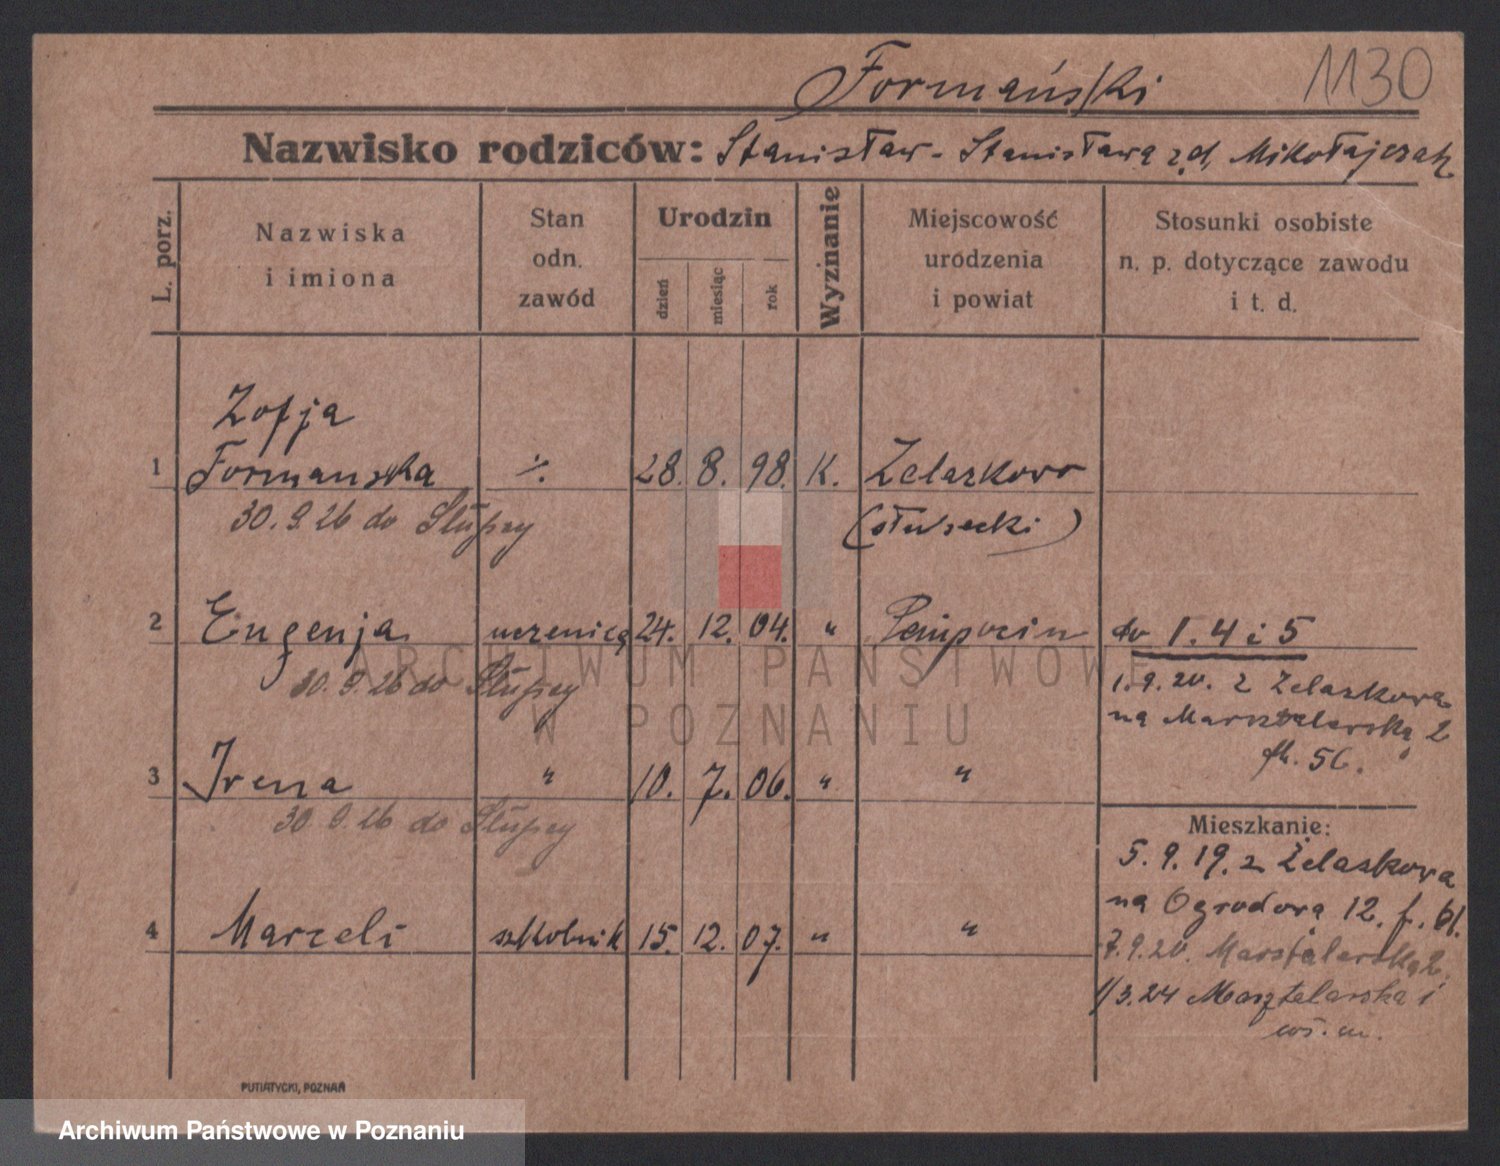 Formański 1130
Nazwisko rodziców: Stanisław - Stanisława z d. Mikołajczak
L. porz.
Nazwiska
i imiona
Stan
odn.
zawód
Urodzin
dzień
miesiąc
rok
Wyznanie
Miejscowość
urodzenia
i powiat
Stosunki osobiste
n. p. dotyczące zawodu
i t. d.
Zofja
1 Formanska ·/. 28. 8. 98. K. Zelazkowo
30.9.26 do Słupcy (słupecki)
2 Eugenja uczenica 24. 12. 04. " do 1. 4 i 5
30.9.26 do Słupcy
1.9.20. z Zelazkowa
na Marsztalarską 2
56.
3 Irena " 10. 7. 06. " "
30.9.26 do Słupcy
4 Marceli szkolnik 15. 12. 07. " "
Mieszkanie:
5.9.19. z Żelaskowa
na Ogrodową 12. f. 61.
7.9.20. Marstalarską 2.
1/3.24 Masztalarska i
ARCHIWUM PAŃSTWOWE
W POZNANIU
PUTIATYCKI, POZNAŃ
Archiwum Państwowe w Poznaniu